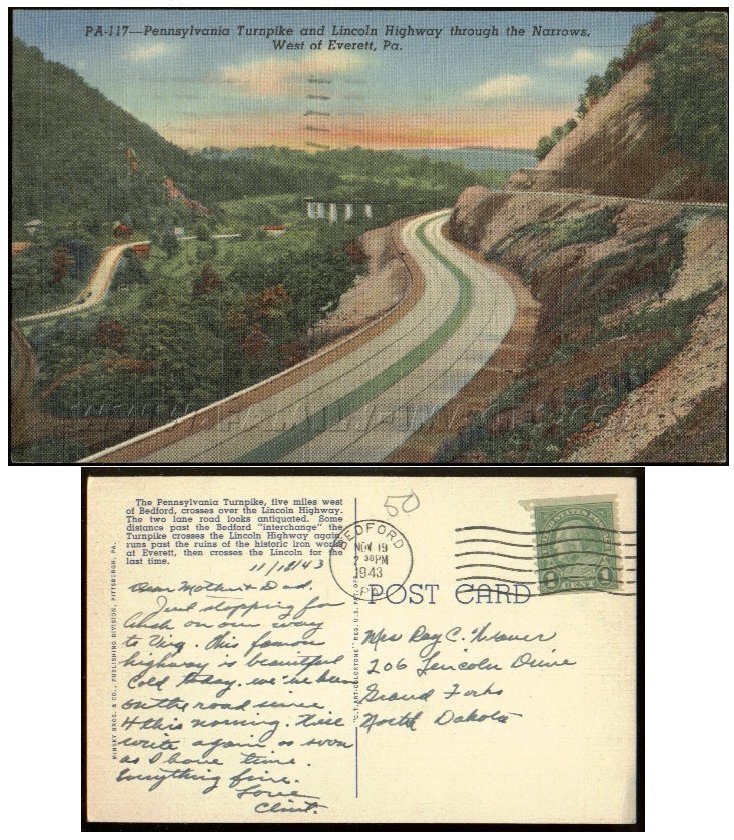 PA-117—Pennsylvania Turnpike and Lincoln Highway through the Narrows,
West of Everett, Pa.
The Pennsylvania Turnpike, five miles west
of Bedford, crosses over the Lincoln Highway.
The two lane road looks antiquated. Some
distance past the Bedford "interchange" the
Turnpike crosses the Lincoln Highway again,
runs past the ruins of the historic iron works
at Everett, then crosses the Lincoln for the
last time.
11/18/43
Dear Mother & Dad,
Just stopping for
lunch on our way
to Virg. This famous
highway is beautiful
Cold today. we've been
on the road since
4 this morning.
write again as soon
as I have time.
Everything fine.
Love
Clint.
MINSKY BROS. & CO., PUBLISHING DIVISION, PITTSBURGH, PA.
"C.T. ART-COLORTONE" REG. U.S. PAT. OFF.
50
BEDFORD
NOV 19
2 30PM
1943
PA.
POST CARD
UNITED STATES POSTAGE
1 CENT 1
Mrs Ray C. Weaver
206 Lincoln Drive
Grand Forks
North Dakota